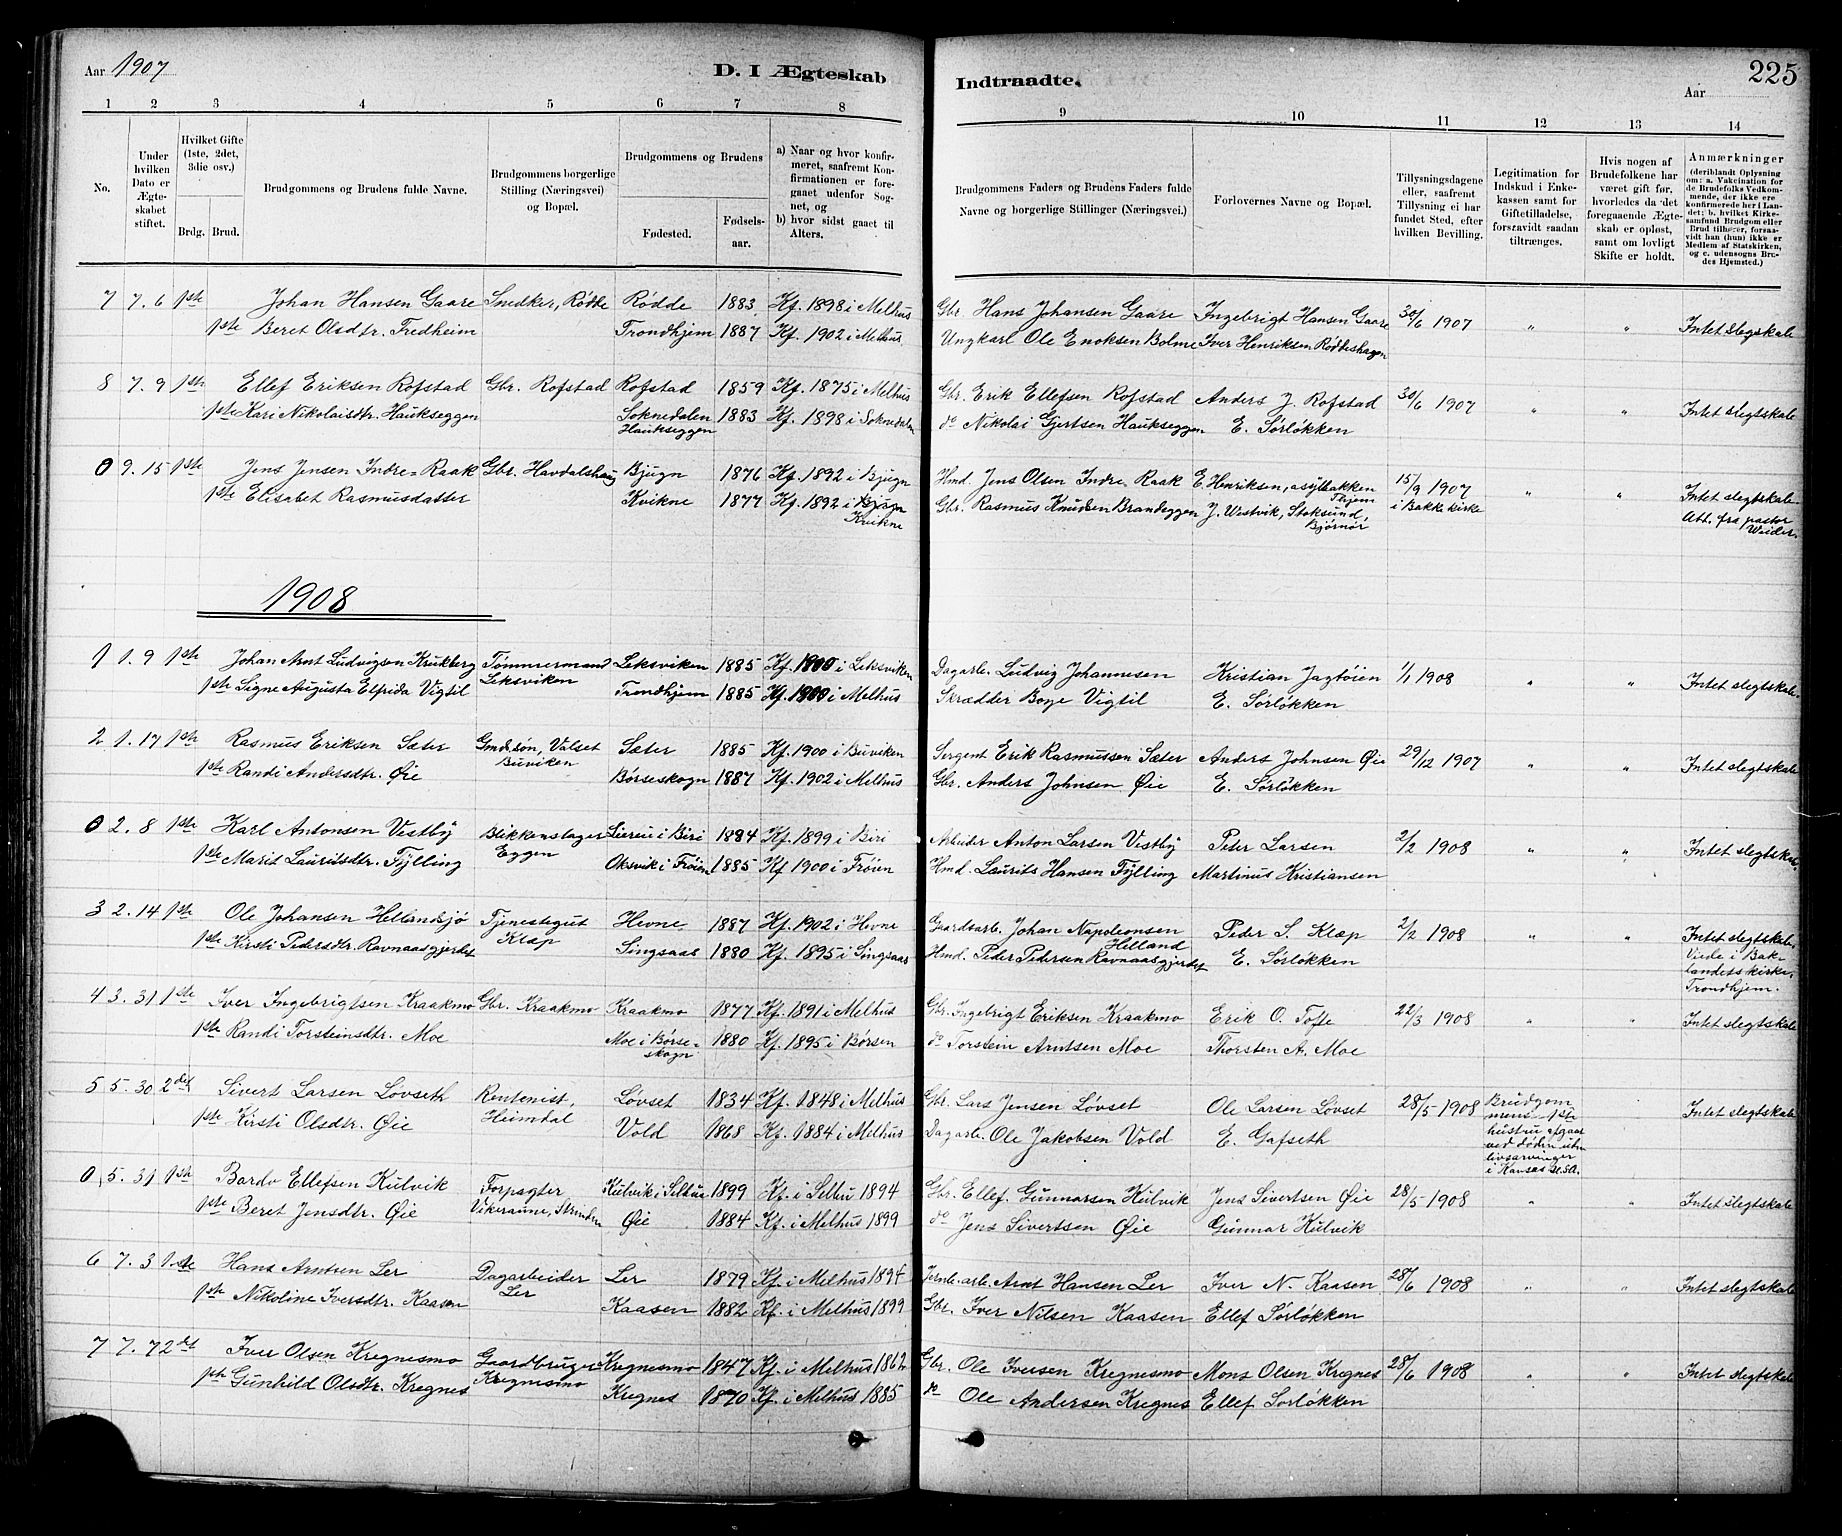 Aar 1907
D. I Ægteskab
Indtraadte.
225
Aar
1 2 3 4 5 6 7 8 9 10 11 12 13 14
No.
Under hvilken Dato er Ægteskabet stiftet.
Hvilket Gifte (1ste, 2det, 3die osv.)
Brdg. Brud.
Brudgommens og Brudens fulde Navne.
Brudgommens borgerlige Stilling (Næringsvei) og Bopæl.
Brudgommens og Brudens
Fødested.
Fødselsaar.
a) Naar og hvor konfirmeret, saafremt Konfirmationen er foregaaet udenfor Sognet, og
b) hvor sidst gaaet til Alters.
Brudgommens Faders og Brudens Faders fulde Navne og borgerlige Stillinger (Næringsvei.)
Forlovernes Navne og Bopæl.
Tillysningsdagene eller, saafremt Tillysning ei har fundet Sted, efter hvilken Bevilling.
Legitimation for Indskud i Enkekassen samt for Giftetilladelse, forsaavidt saadan tiltrænges.
Hvis nogen af Brudefolkene har været gift før, hvorledes da det foregaaende Ægteskab er opløst, samt om lovligt Skifte er holdt.
Anmærkninger (deriblandt Oplysning om: a. Vakcination for de Brudefolks Vedkommende, der ikke ere konfirmerede her i Landet; b. hvilket Kirkesamfund Brudgom eller Brud tilhører, forsaavidt han (hun) ikke er Medlem af Statskirken, og c. udensogns Brudes Hjemsted.)
7 7.6 1ste Johan Hansen Gaare Snedker, Rødde Rødde 1883 Kf. 1898 i Melhus Gbr. Hans Johansen Gaare Ingebrigt Hansen Gaare 30/6 1907 " " Intet slegtskab
1ste Beret Olsdtr. Fredheim Trondhjem 1887 Kf. 1902 i Melhus Ungkarl Ole Enoksen Bolme Iver Henriksen Røddeshagen
8 7.9 1ste Ellef Eriksen Rofstad Gbr. Rofstad Rofstad 1859 Kf. 1875 i Melhus Gbr. Erik Ellefsen Rofstad Anders J. Rofstad 30/6 1907 " " Intet slegtskab
1ste Kari Nikolaisdtr. Haukseggen Soknedalen Haukseggen 1883 Kf. 1898 i Soknedalen do Nikolai Gjertsen Haukseggen E. Sørløkken
0 9.15 1ste Jens Jensen Indre-Raak Gbr. Havdalshaug Bjugn 1876 Kf. 1892 i Bjugn Hmd. Jens Olsen Indre Raak E. Henriksen, asylbakken Thjem 15/9 1907 i Bakke kirke " " Intet slegtskab
1ste Elisabet Rasmusdatter Kvikne 1877 Kf. 1892 i Bjugn Kvikne Gbr. Rasmus Knudsen Brandeggen J. Westvik, Stoksund, Bjørnør Att. fra pastor Weider.
1908
1 1.9 1ste Johan Arnt Ludvigsen Krukberg Tømmermand Leksviken Leksviken 1885 Kf. 1900 i Leksviken Dagarb. Ludvig Johannesen Kristian Jagtøien 1/1 1908 " " Intet slegtskab
1ste Signe Augusta Elfrida Vigtil Trondhjem 1885 Kf. 1900 i Melhus Skrædder Boye Vigtil E. Sørløkken
2 1.17 1ste Rasmus Eriksen Sæter Gmdssøn, Valset Buviken Sæter 1885 Kf. 1900 i Buviken Sergent Erik Rasmussen Sæter Anders Johnsen Øie 29/12 1907 " " Intet slegtskab
1ste Randi Andersdtr. Øie Børseskogn 1887 Kf. 1902 i Melhus Gbr. Anders Johnsen Øie E. Sørløkken
0 2.8 1ste Karl Antonsen Vestby Blikkenslager Eggen i Biri 1884 Kf. 1899 i Biri Arbeider Anton Larsen Vestby Peder Larsen 2/2 1908 " " Intet slegtskab
1ste Marit Lauritsdtr. Fylling Oksvik i Frøien 1885 Kf 1900 i Frøien Hmd. Laurits Hansen Fylling Martinus Kristiansen
3 2.14 1ste Ole Johansen Hellandsjø Tjenestegut Klæp Hevne 1887 Kf. 1902 i Hevne Gaardsarb. Johan Napoleonsen Helland Peder S. Klæp 2/2 1908 " " Intet slegtskab. Viede i Baklandets kirke, Trondhjem.
1ste Kirsti Pedersdtr. Ravnaasgjerdet Singsaas 1880 Kf. 1895 i Singsaas Hmd. Peder Pedersen Ravnaasgjerdet E. Sørløkken
4 3.31 1ste Iver Ingebrigtsen Kraakmo Gbr. Kraakmo Kraakmo 1877 Kf. 1891 i Melhus Gbr. Ingebrigt Eriksen Kraakmo Erik O. Tofte 22/3 1908 " " Intet slegtskab
1ste Randi Torsteinsdtr. Moe Moe i Børseskogn 1880 Kf. 1895 i Børsen do Torstein Arntsen Moe Thorsten A. Moe
5 5.30 2det Sivert Larsen Løvseth Rentenist, Heimdal Løvset 1834 Kf. 1848 i Melhus Gbr. Lars Jensen Løvset Ole Larsen Løvset 28/5 1908 Brudgommens 1ste hustru afgaat ved døden uden livsarvinger i Kansas U.S.A. Intet slegtskab
1ste Kirsti Olsdtr. Øie Vold 1868 Kf. 1884 i Melhus Dagarb. Ole Jakobsen Vold E. Gafseth
0 5.31 1ste Bardo Ellefsen Kulvik Forpagter Vikeraune, Strinden Kulvik i Selbu 1899 Kf. i Selbu 1894 Gbr. Ellef Gunnarsen Kulvik Jens Sivertsen Øie 28/5 1908 " " Intet slegtskab
1ste Beret Jensdtr. Øie Øie 1884 Kf. i Melhus 1899 do Jens Sivertsen Øie Gunnar Kulvik
6 7.3 1ste Hans Arntsen Ler Dagarbeider Ler Ler 1879 Kf. i Melhus 1894 Jernb.arb. Arnt Hansen Ler Iver N. Kaasen 28/6 1908 " " Intet slegtskab
1ste Nikoline Iversdtr. Kaasen Kaasen 1882 Kf. i Melhus 1899 Gbr. Iver Nilsen Kaasen Ellef Sørløkken
7 7.7 2det Iver Olsen Kregnesmo Gaardbruger Kregnesmo Kregnesmo 1847 Kf. i Melhus 1862 Gbr. Ole Iversen Kregnesmo Mons Olsen Kregnes 28/6 1908 " " Intet slegtskab
1ste Gunhild Olsdtr. Kregnes Kregnes 1870 Kf. i Melhus 1885 do Ole Andersen Kregnes Ellef Sørløkken